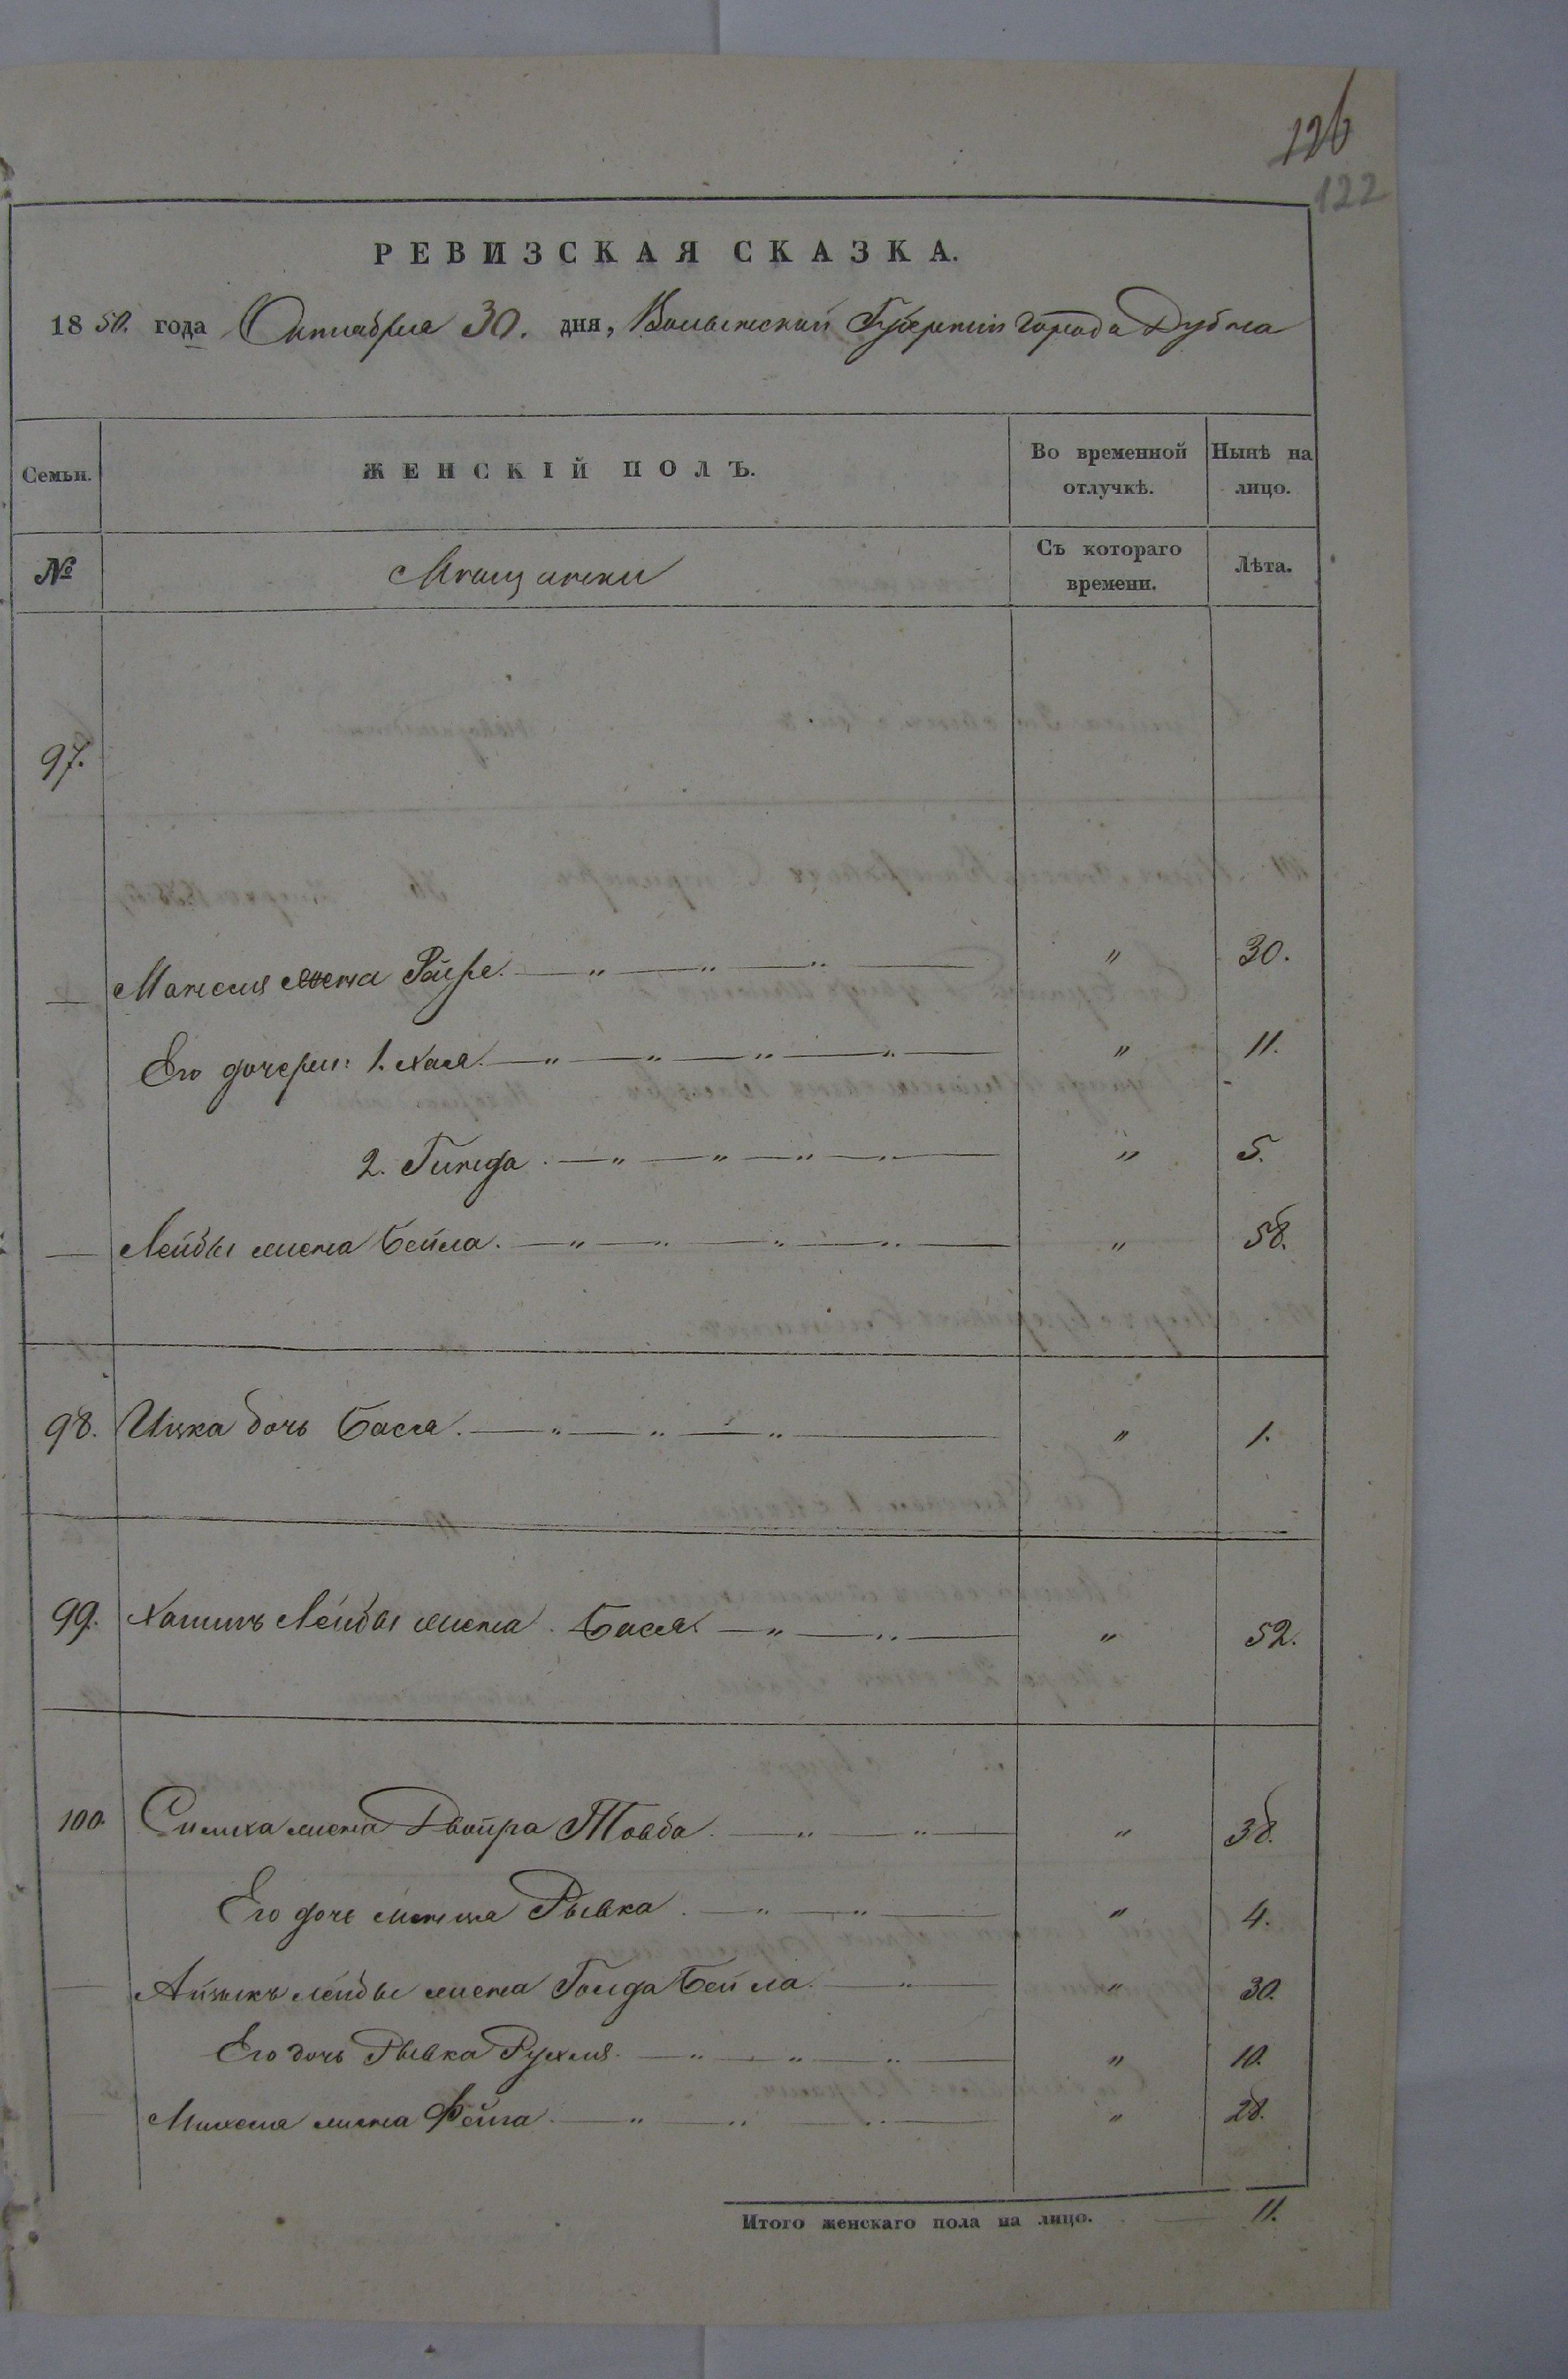 126
122
РЕВИЗСКАЯ СКАЗКА.
1850. года Октября 30. дня, Волынской Губернии города Дубна
Семьи. ЖЕНСКІЙ ПОЛЪ. Во временной отлучкѣ. Нынѣ на лицо.
№ Мѣщанки Съ котораго времени. Лѣта.
97.
— жена " " " " 30.
Его дочери: 1. Хася. " " " " " 11.
2. Гинда. " " " " " 5.
— Лейбы жена Бейла. " " " " " 58.
98. Ицка дочь Бася. " " " " 1.
99. Хаимъ Лейбы жена Бася. " " " 52.
100. Симха жена Двойра Товба. " " " 38.
Его дочь Рывка. " " " 4.
— Айзыкъ Лейбы жена Голда Бейла. " " 30.
Его дочь Рывка Рухля. " " " " 10.
— Михеля жена Фейга. " " " " 28.
Итого женскаго пола на лицо. 11.